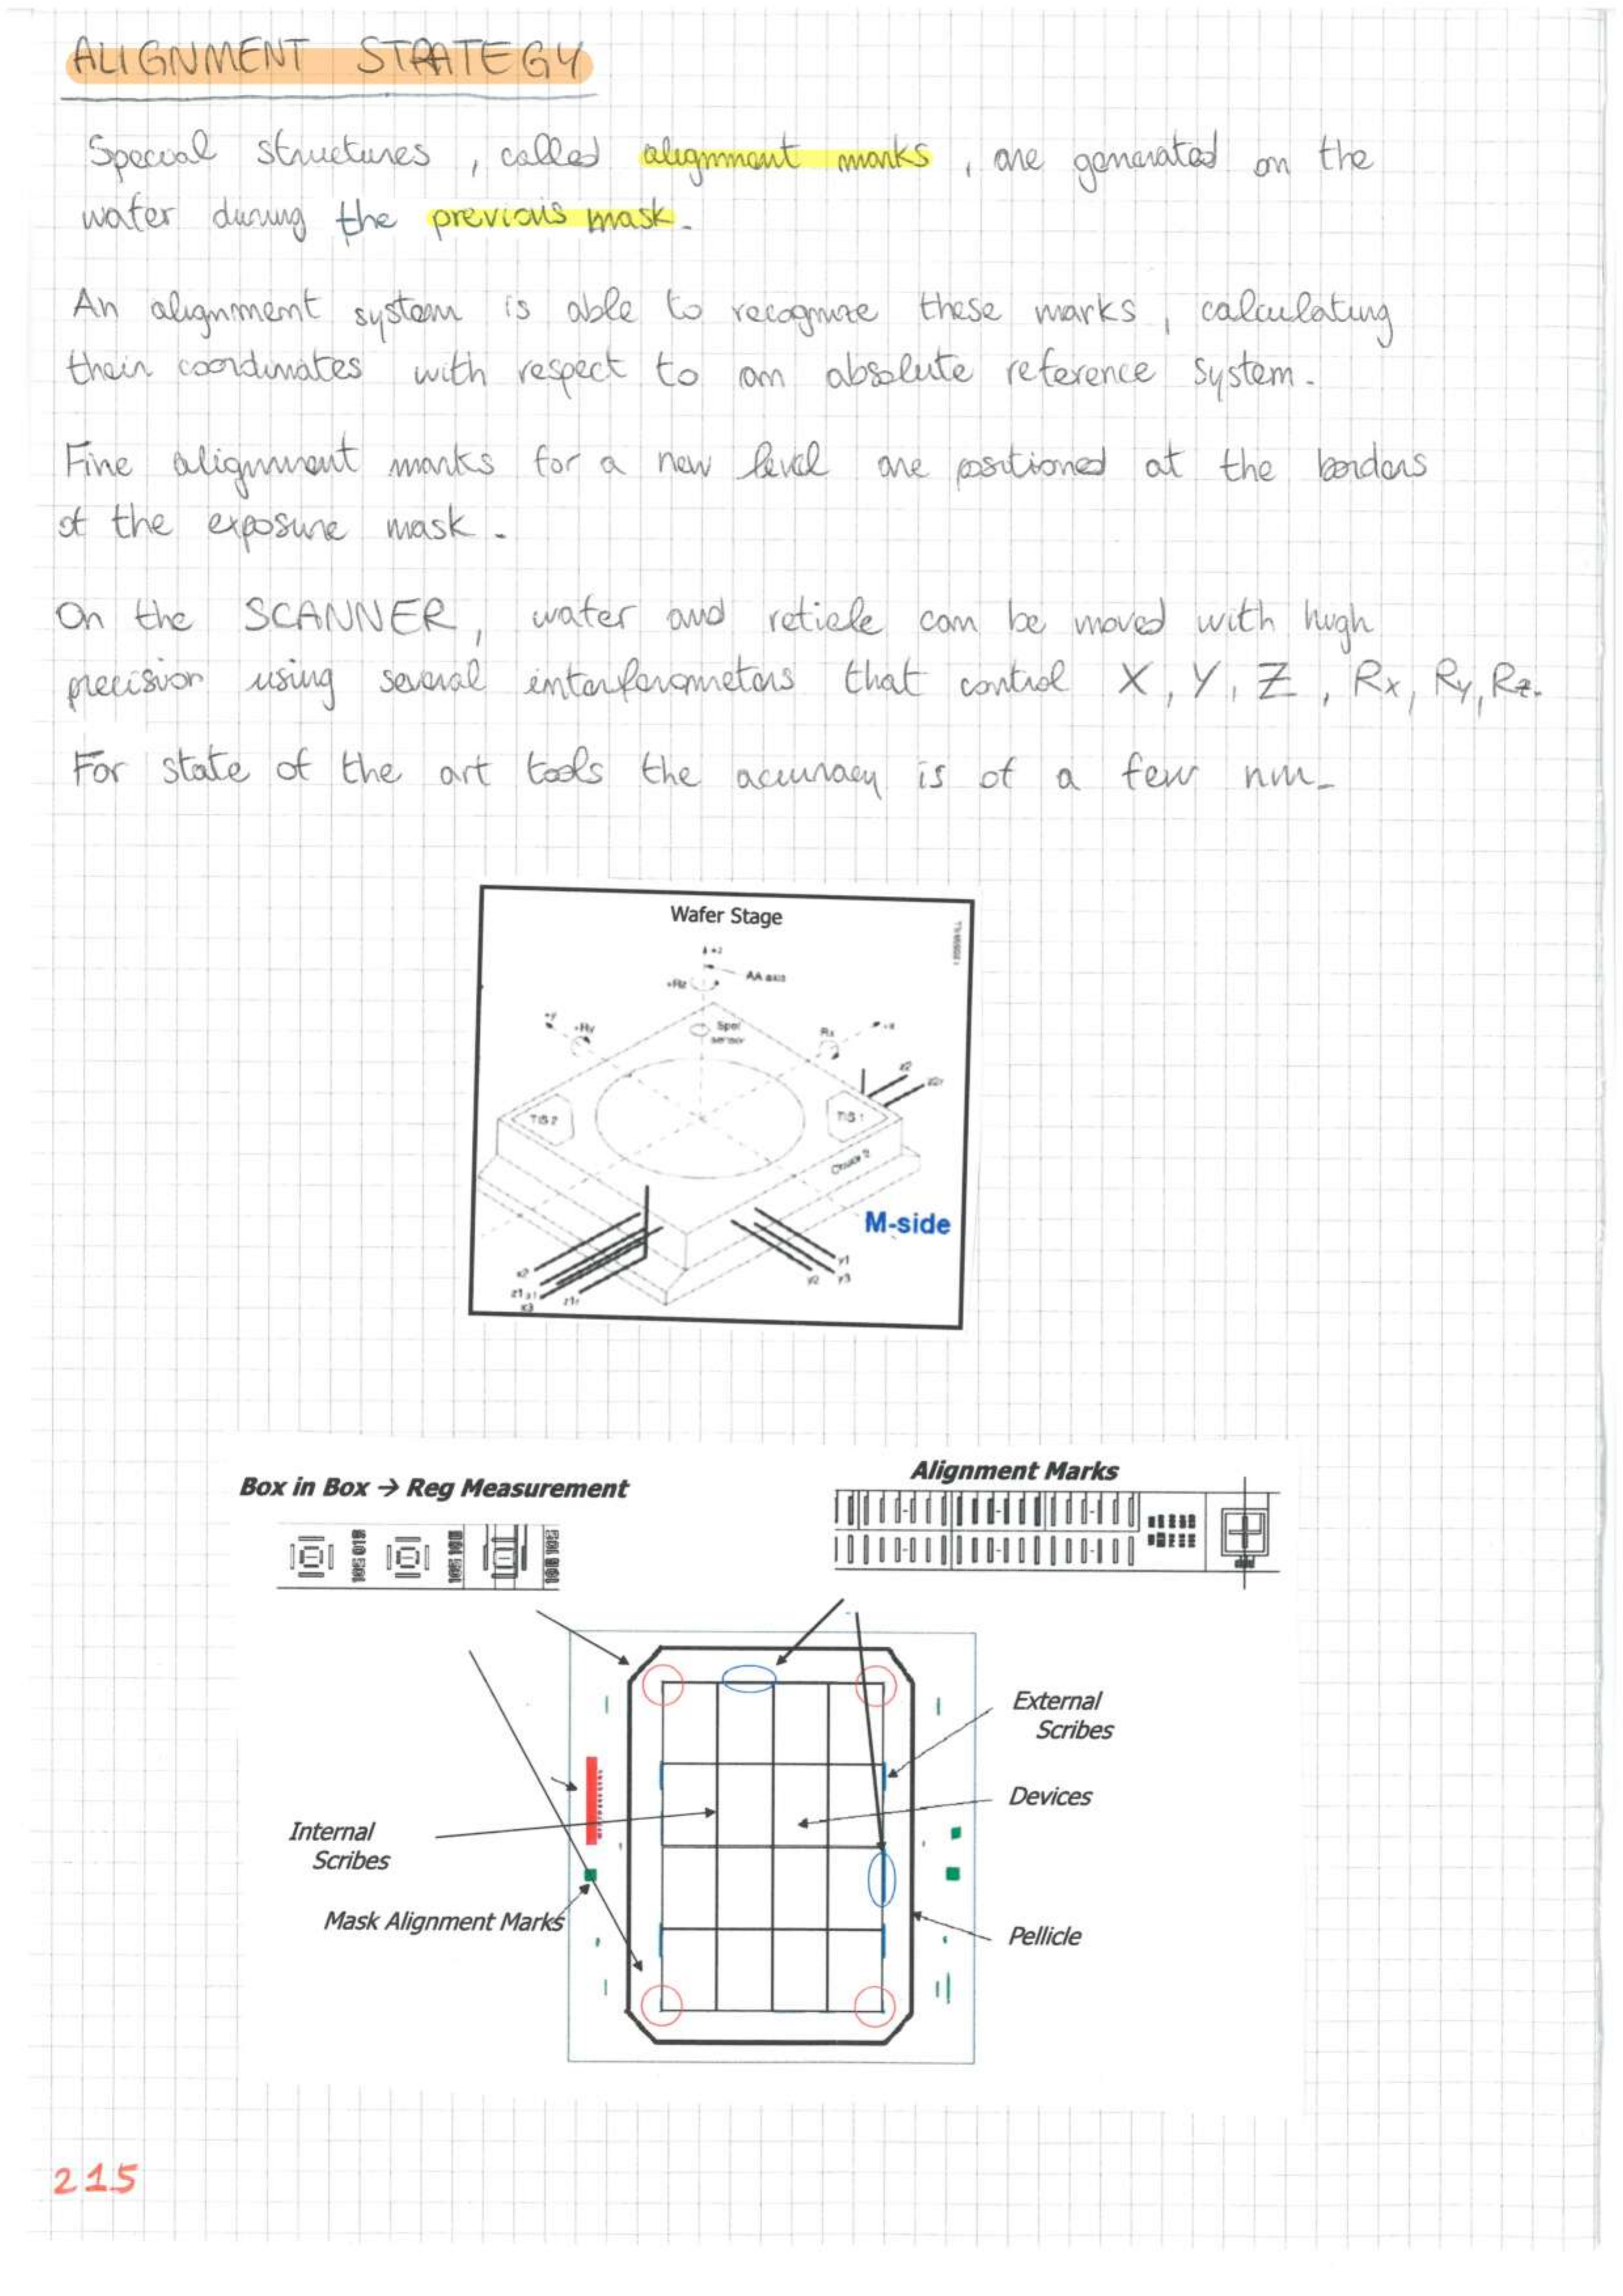 ALIGNMENT STRATEGY
Special structures, called alignment marks, are generated on the
wafer during the previous mask.
An alignment system is able to recognize these marks, calculating
their coordinates with respect to an absolute reference system.
Fine alignment marks for a new level are positioned at the borders
of the exposure mask.
On the SCANNER, wafer and reticle can be moved with high
precision using several interferometers that control X, Y, Z, Rx, Ry, Rz.
For state of the art tools the accuracy is of a few nm.
Wafer Stage
AA axis
+Rz
+y
+Ry
Spot
sensor
Rx
+x
x2
TIS 2
TIS 1
Chuck 2
M-side
x2
y1
y2 y3
x3
z1r
Box in Box → Reg Measurement
Alignment Marks
External
Scribes
Devices
Internal
Scribes
Mask Alignment Marks
Pellicle
215